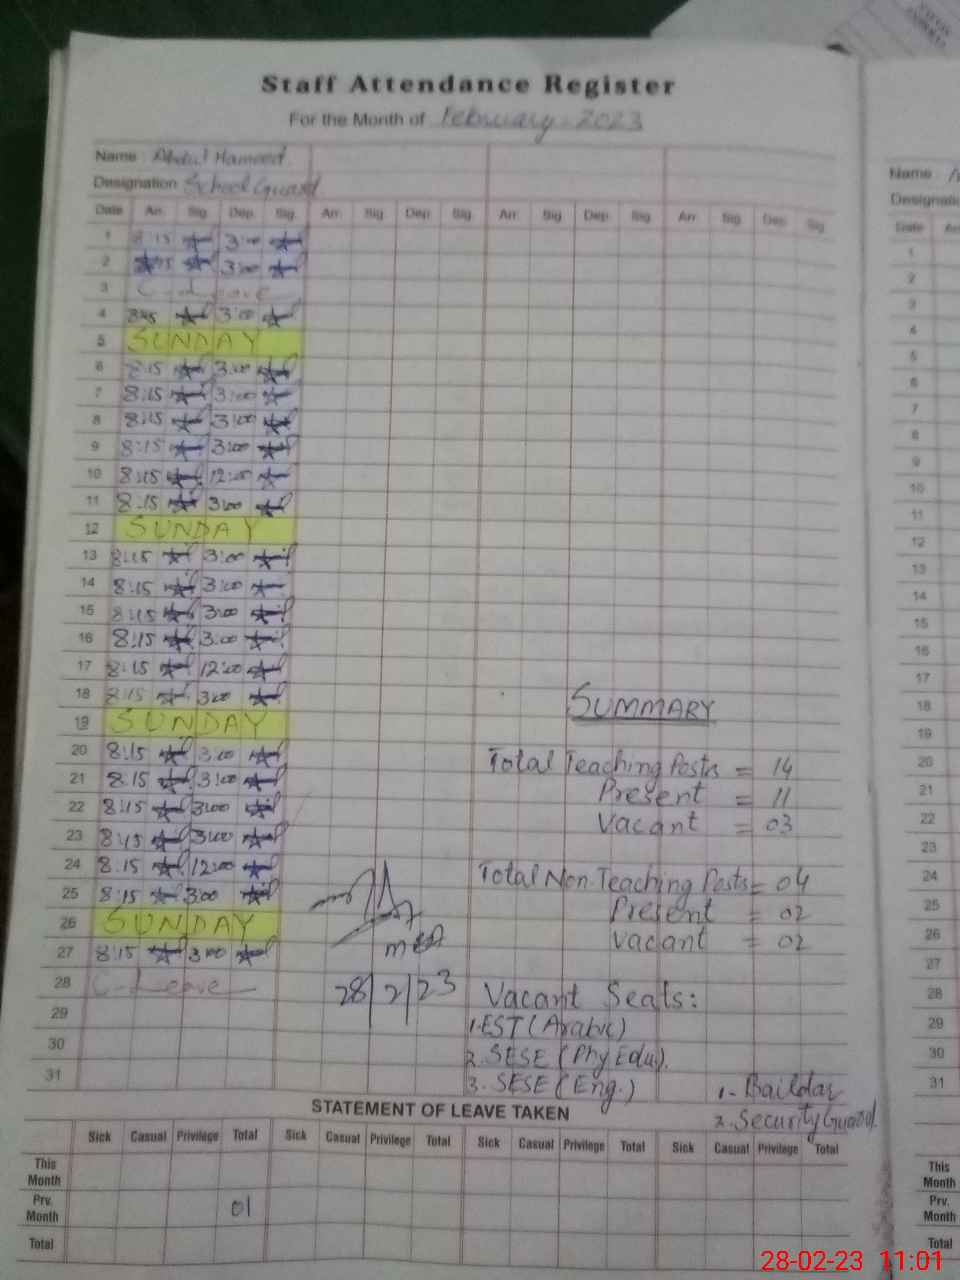 Staff Attendance Register
For the Month of February-2023
Name Abdul Hameed
Designation School Guard
Date Arr. Sig. Dep. Sig. Arr. Sig. Dep. Sig. Arr. Sig. Dep. Sig. Arr. Sig. Dep. Sig.
1 8:15 3:00
2 3:00
3 C-Leave
4 3:00
5 SUNDAY
6 8:15 3:00
7 8:15 3:00
8 8:15 3:00
9 8:15 3:00
10 8:15 12:00
11 8:15 3:00
12 SUNDAY
13 8:15 3:00
14 8:15 3:00
15 8:15 3:00
16 8:15 3:00
17 8:15 12:00
18 8:15 3:00
19 SUNDAY
20 8:15 3:00
21 8:15 3:00
22 8:15 3:00
23 8:15 3:00
24 8:15 12:00
25 8:15 3:00
26 SUNDAY
27 8:15 3:00
28 C-Leave
29
30
31
28/2/23
SUMMARY
Total Teaching Posts = 14
Present = 11
Vacant = 03
Total Non.Teaching Posts= 04
Present = 02
Vacant = 02
Vacant Seats:
1.EST (Arabic)
2.SESE (Phy Edu).
3. SESE (Eng.)
1. Baildar
2. Security Guard.
STATEMENT OF LEAVE TAKEN
Sick Casual Privilege Total Sick Casual Privilege Total Sick Casual Privilege Total Sick Casual Privilege Total
This Month
Prv. Month 01
Total
Name
Date
1
2
3
4
5
6
7
8
9
10
11
12
13
14
15
16
17
18
19
20
21
22
23
24
25
26
27
28
29
30
31
This Month
Prv. Month
Total
28-02-23 11:01